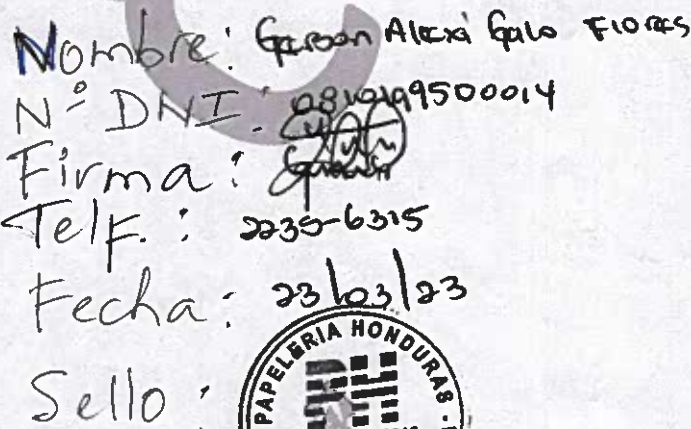 Nombre: Gerson Alexi Galo Flores
Nº DNI: 0819199500014
Firma:
Telf.: 2235-6315
Fecha: 23/03/23
Sello:
PAPELERIA HONDURAS